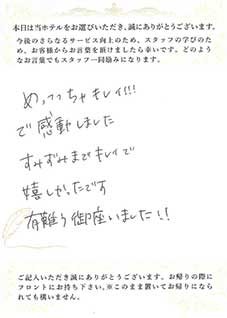 本日は当ホテルをお選びいただき、誠にありがとうございます。
今後のさらなるサービス向上のため、スタッフの学びのため、お客様からお言葉を頂けましたら幸いです。どのようなお言葉でもスタッフ一同励みになります。
めっっちゃキレイ!!!
で感動しました
すみずみまでキレイで
嬉しかったです
有難う御座いました!!
ご記入いただき誠にありがとうございます。お帰りの際にフロントにお持ち下さい。※このまま置いてお帰りになられても構いません。